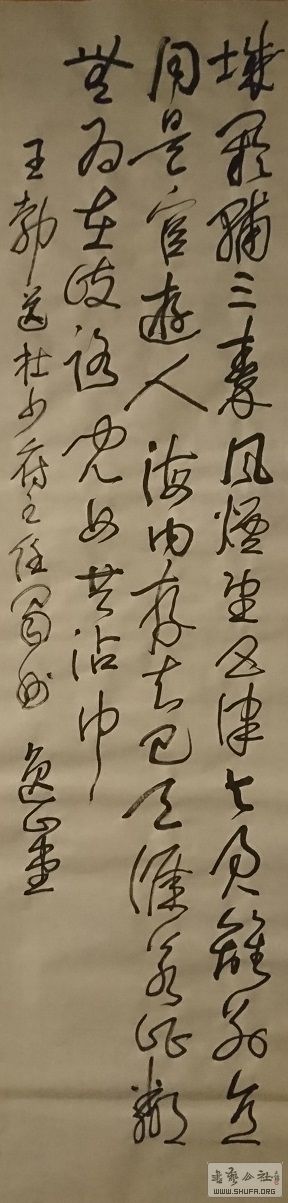 城闕輔三秦風煙望五津与君離別意
同是宦遊人海內存知己天涯若比鄰
無為在歧路兒女共沾巾
王勃送杜少府之任蜀州
书艺公社
WWW.SHUFA.ORG